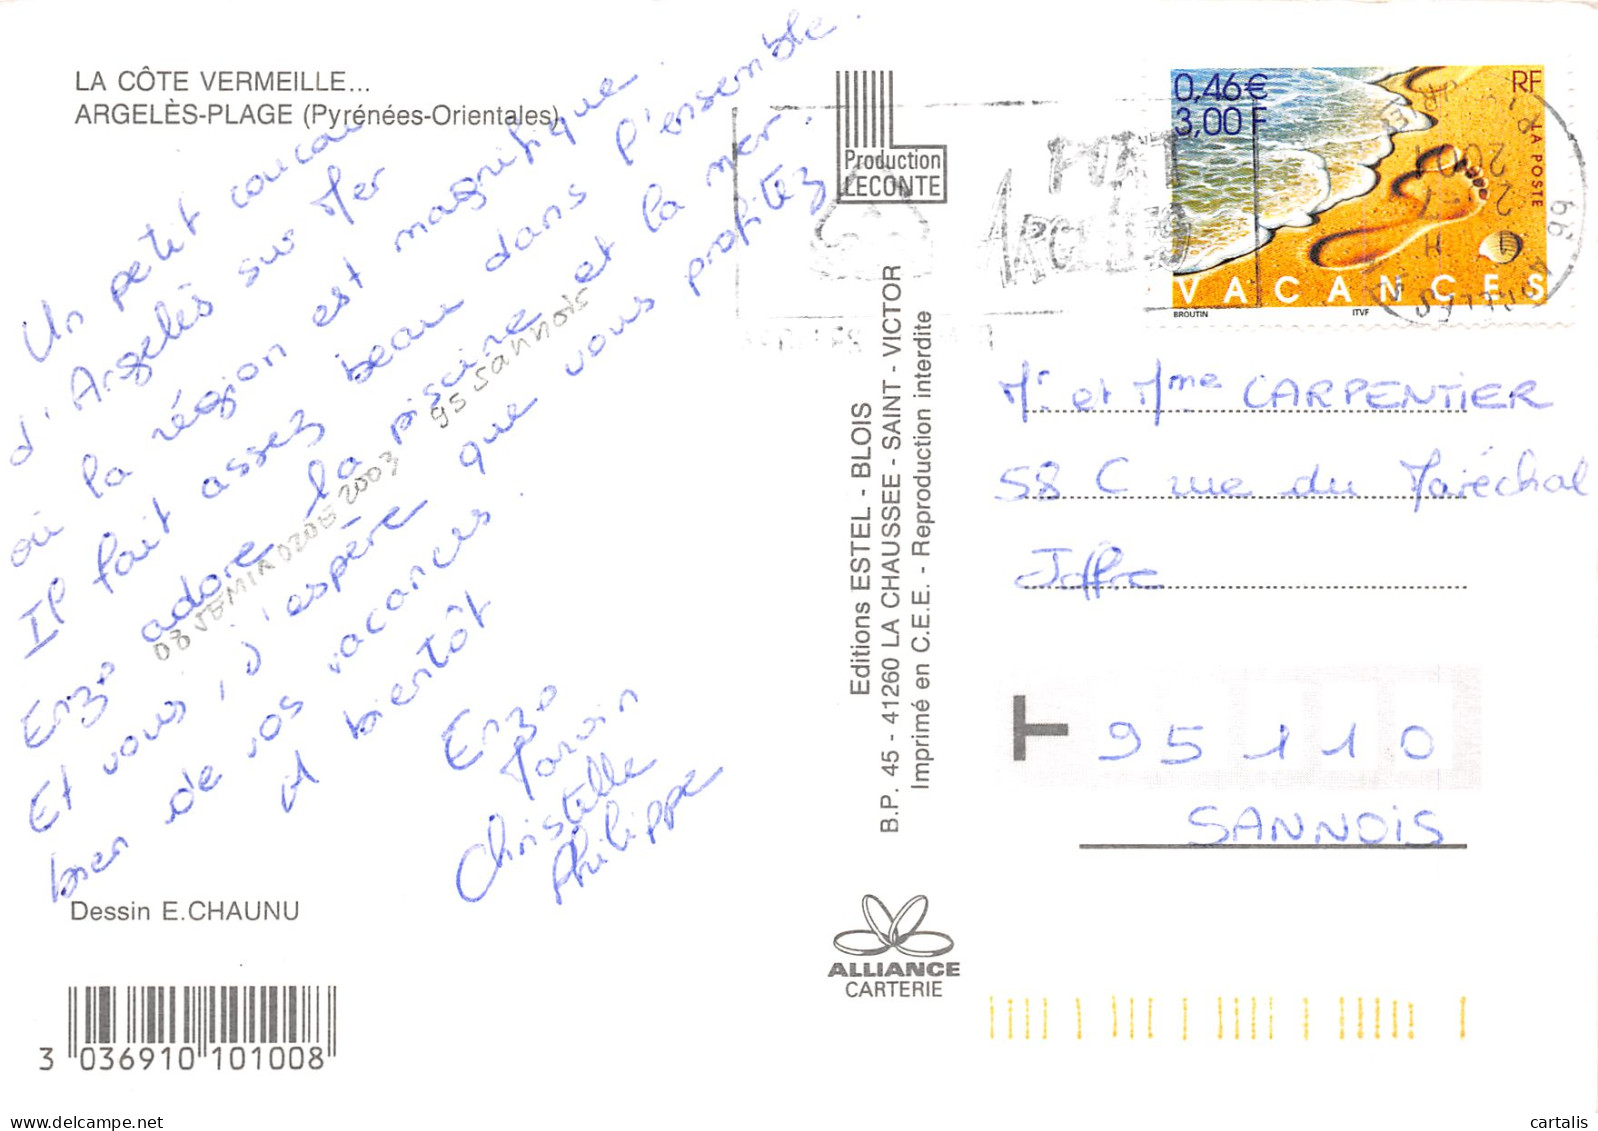 LA CÔTE VERMEILLE...
ARGELÈS-PLAGE (Pyrénées-Orientales)
Un petit coucou
d'Argelès sur Mer
où la région est magnifique
Il fait assez beau dans l'ensemble.
Enzo adore la piscine et la mer.
Et vous, j'espère que vous profitez
bien de vos vacances
A bientôt
Enzo
Christelle
Philippe
95 SANNOIS
2003
Dessin E.CHAUNU
3 036910 101008
Production
LECONTE
Editions ESTEL - BLOIS
B.P. 45 - 41260 LA CHAUSSEE - SAINT - VICTOR
Imprimé en C.E.E. - Reproduction interdite
ALLIANCE
CARTERIE
0,46€
3,00 F
RF
LA POSTE
VACANCES
BROUTIN
ITVF
PORT
ARGELÈS
2001
66
Mr et Mme CARPENTIER
58 C rue du Maréchal
Joffre
95110
SANNOIS
cartalis